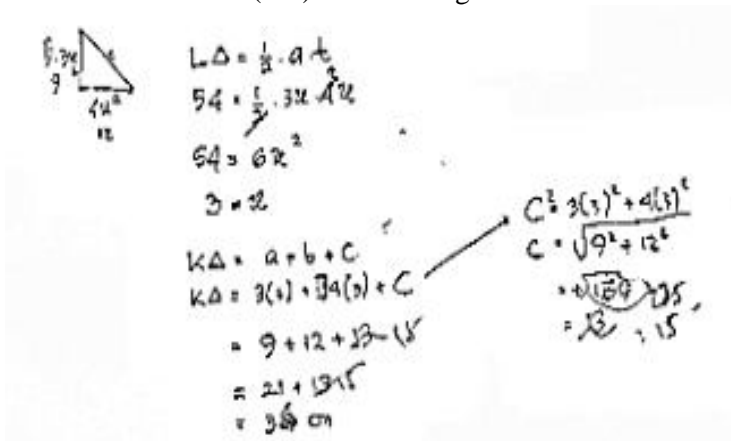 3x
9
4x
12
LΔ = 1/2 . a t
54 = 1/2 . 3x 4x
54 = 6x²
3 = x
KΔ = a + b + c
KΔ = 3(3) + 4(3) + C
= 9 + 12 + 13 15
= 21 + 15
= 36 cm
C² = 3(3)² + 4(3)²
C = √9² + 12²
= 15
= 13 = 15